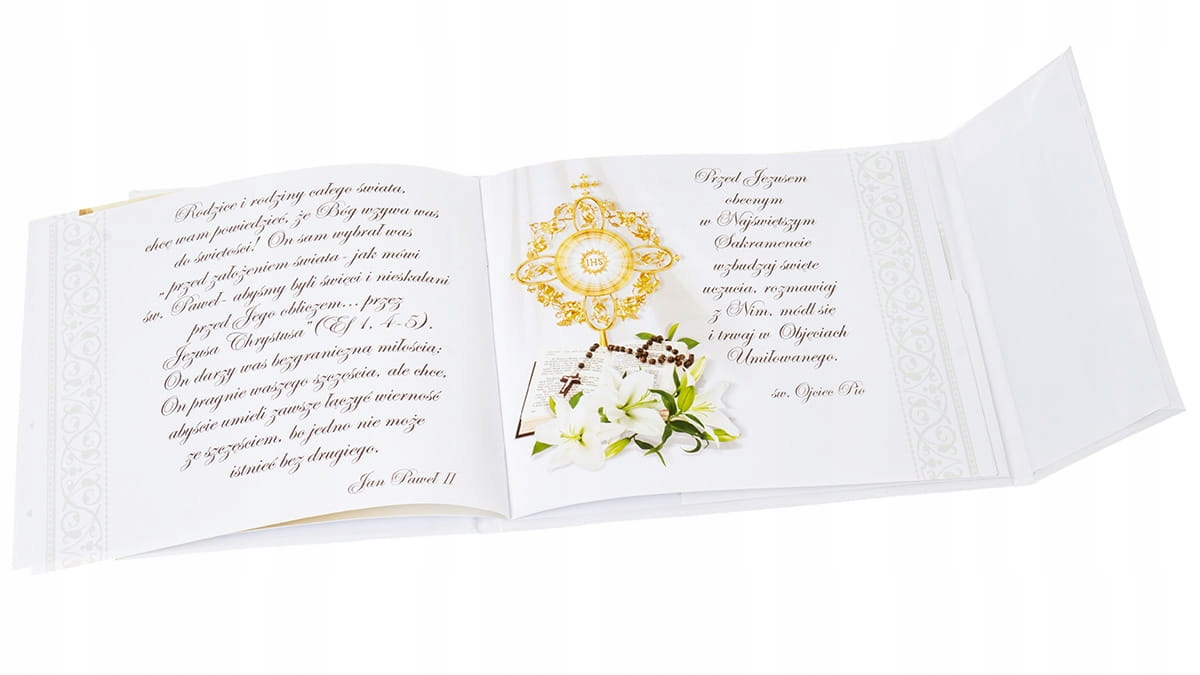 Rodzice i rodziny całego świata,
chcę wam powiedzieć, że Bóg wzywa was
do świętości! On sam wybrał was
„przed założeniem świata - jak mówi
św. Paweł - abyśmy byli święci i nieskalani
przed Jego obliczem... przez
Jezusa Chrystusa" (Ef 1, 4-5).
On darzy was bezgraniczną miłością;
On pragnie waszego szczęścia, ale chce,
abyście umieli zawsze łączyć wierność
ze szczęściem, bo jedno nie może
istnieć bez drugiego.
Jan Paweł II
IHS
Przed Jezusem
obecnym
w Najświętszym
Sakramencie
wzbudzaj święte
uczucia, rozmawiaj
z Nim, módl się
i trwaj w Objęciach
Umiłowanego.
św. Ojciec Pio